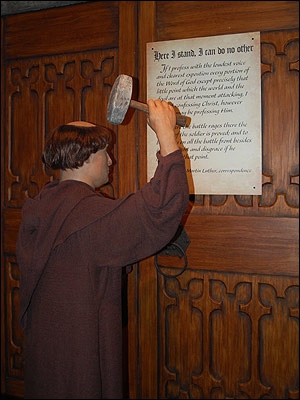 Here I stand, I can do no other
If I profess with the loudest voice
and clearest exposition every portion of
the Word of God except precisely that
little point which the world and the
are at that moment attacking, I
confessing Christ, however
be professing Him.
battle rages there the
the soldier is proved; and to
all the battle front besides
and disgrace if he
that point.
Martin Luther, correspondence